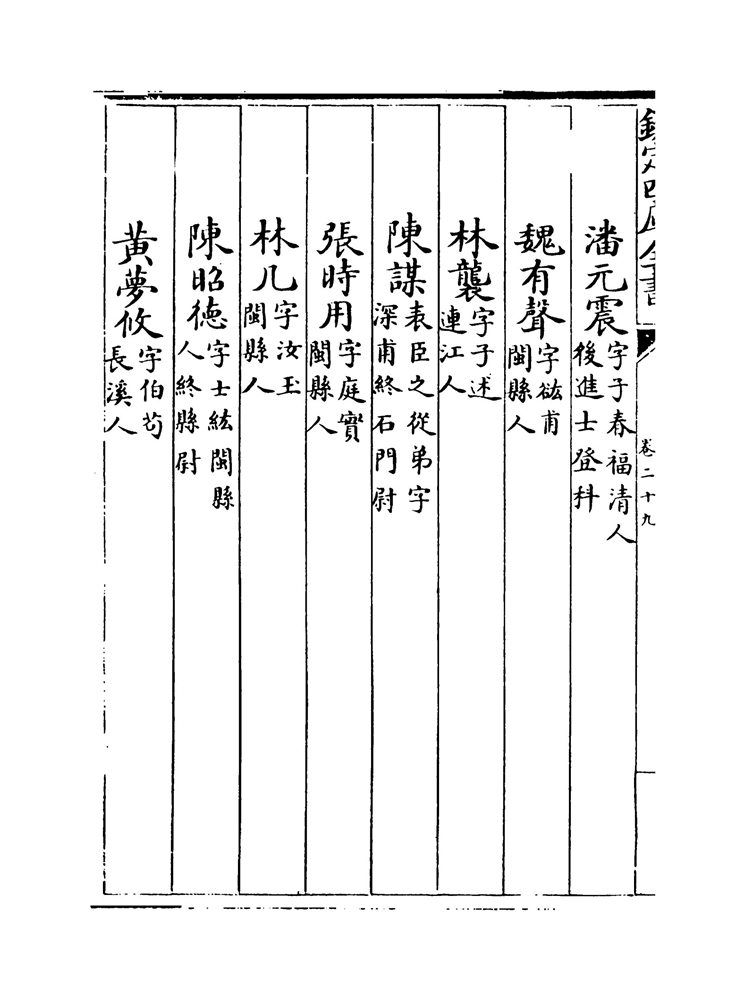 欽定四庫全書
卷二十九
潘元震字子春福清人後進士登科
魏有聲字㳒甫閩縣人
林襲字子述連江人
陳謀表臣之從弟字深甫終石門尉
張時用字庭實閩縣人
林几字汝玉閩縣人
陳昭德字士紘閩縣人終縣尉
黄夢攸字伯茍長溪人